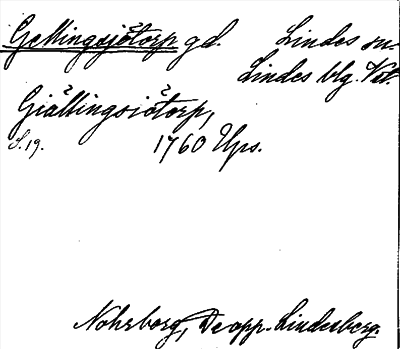 Gellingsjötorp gd. Lindes sn.
Lindes blg. Vst.
Giällingsiötorp,
S. 19. 1760 Ups.
Nohrborg, De opp. Lindesberg.